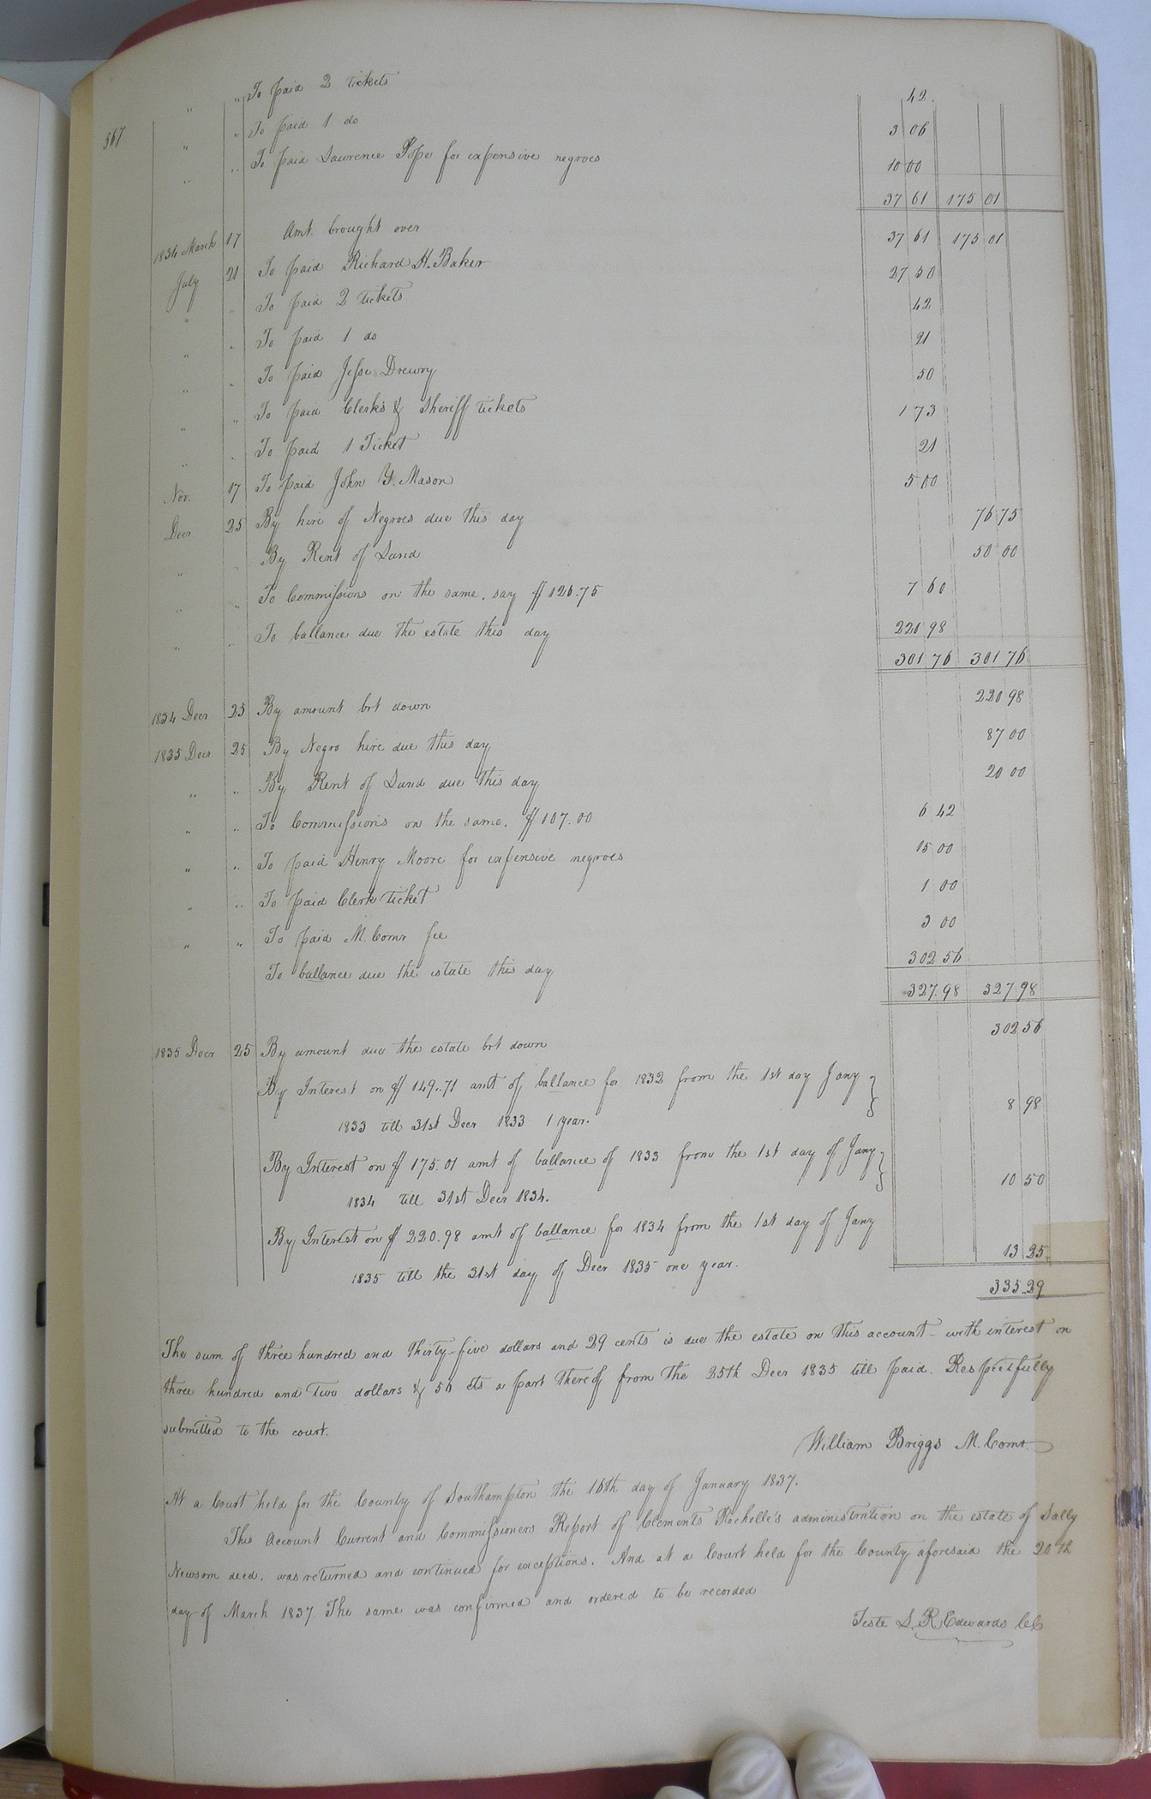 567
" " To paid 2 tickets 42
" " To paid 1 do 3 06
" " To paid Lawrence Pope for expensive negroes 10 00
37 61 175 01
1834 March 17 Amt. brought over 37 61 175 01
July 21 To paid Richard H. Baker 27 50
" " To paid 2 tickets 42
" " To paid 1 do 21
" " To paid Jesse Drewry 50
" " To paid Clerks & Sheriff tickets 1 73
" " To paid 1 Ticket 21
Nov. 17 To paid John Y. Mason 5 00
Decr 25 By hire of Negroes due this day 76 75
" " By Rent of Land 50 00
" " To Commissions on the same. say $126.75 7 60
" " To ballance due the estate this day 220 98
301 76 301 76
1834 Decr 25 By amount brt down 220 98
1835 Decr 25 By Negro hire due this day 87 00
" " By Rent of Land due this day 20 00
" " To Commissions on the same. $107.00 6 42
" " To paid Henry Moore for expensive negroes 15 00
" " To paid Clerk ticket 1 00
" " To paid M. Comr fee 3 00
To ballance due the estate this day 302 56
327.98 327.98
1835 Decr 25 By amount due the estate brt down 302 56
By Interest on $149.71 amt of ballance for 1832 from the 1st day Jany
1833 till 31st Decr 1833 1 year. 8 98
By Interest on $175.01 amt of ballance of 1833 from the 1st day of Jany
1834 till 31st Decr 1834. 10 50
By Interest on $220.98 amt of ballance for 1834 from the 1st day of Jany
1835 till the 31st day of Decr 1835 one year. 13 25
335.29
The sum of three hundred and Thirty-five dollars and 29 cents is due the estate on this account - with interest on
three hundred and Two dollars & 56 cts a part thereof from the 25th Decr 1835 till paid. Respectfully
submitted to the court.
William Briggs M. Comr
At a Court held for the County of Southampton the 16th day of January 1837.
This Account Current and Commissioners Report of Clements Rochelle's administration on the estate of Sally
Newsom decd. was returned and continued for exceptions. And at a Court held for the County aforesaid the 20th
day of March 1837 The same was confirmed and ordered to be recorded
Teste L. R. Edwards CC